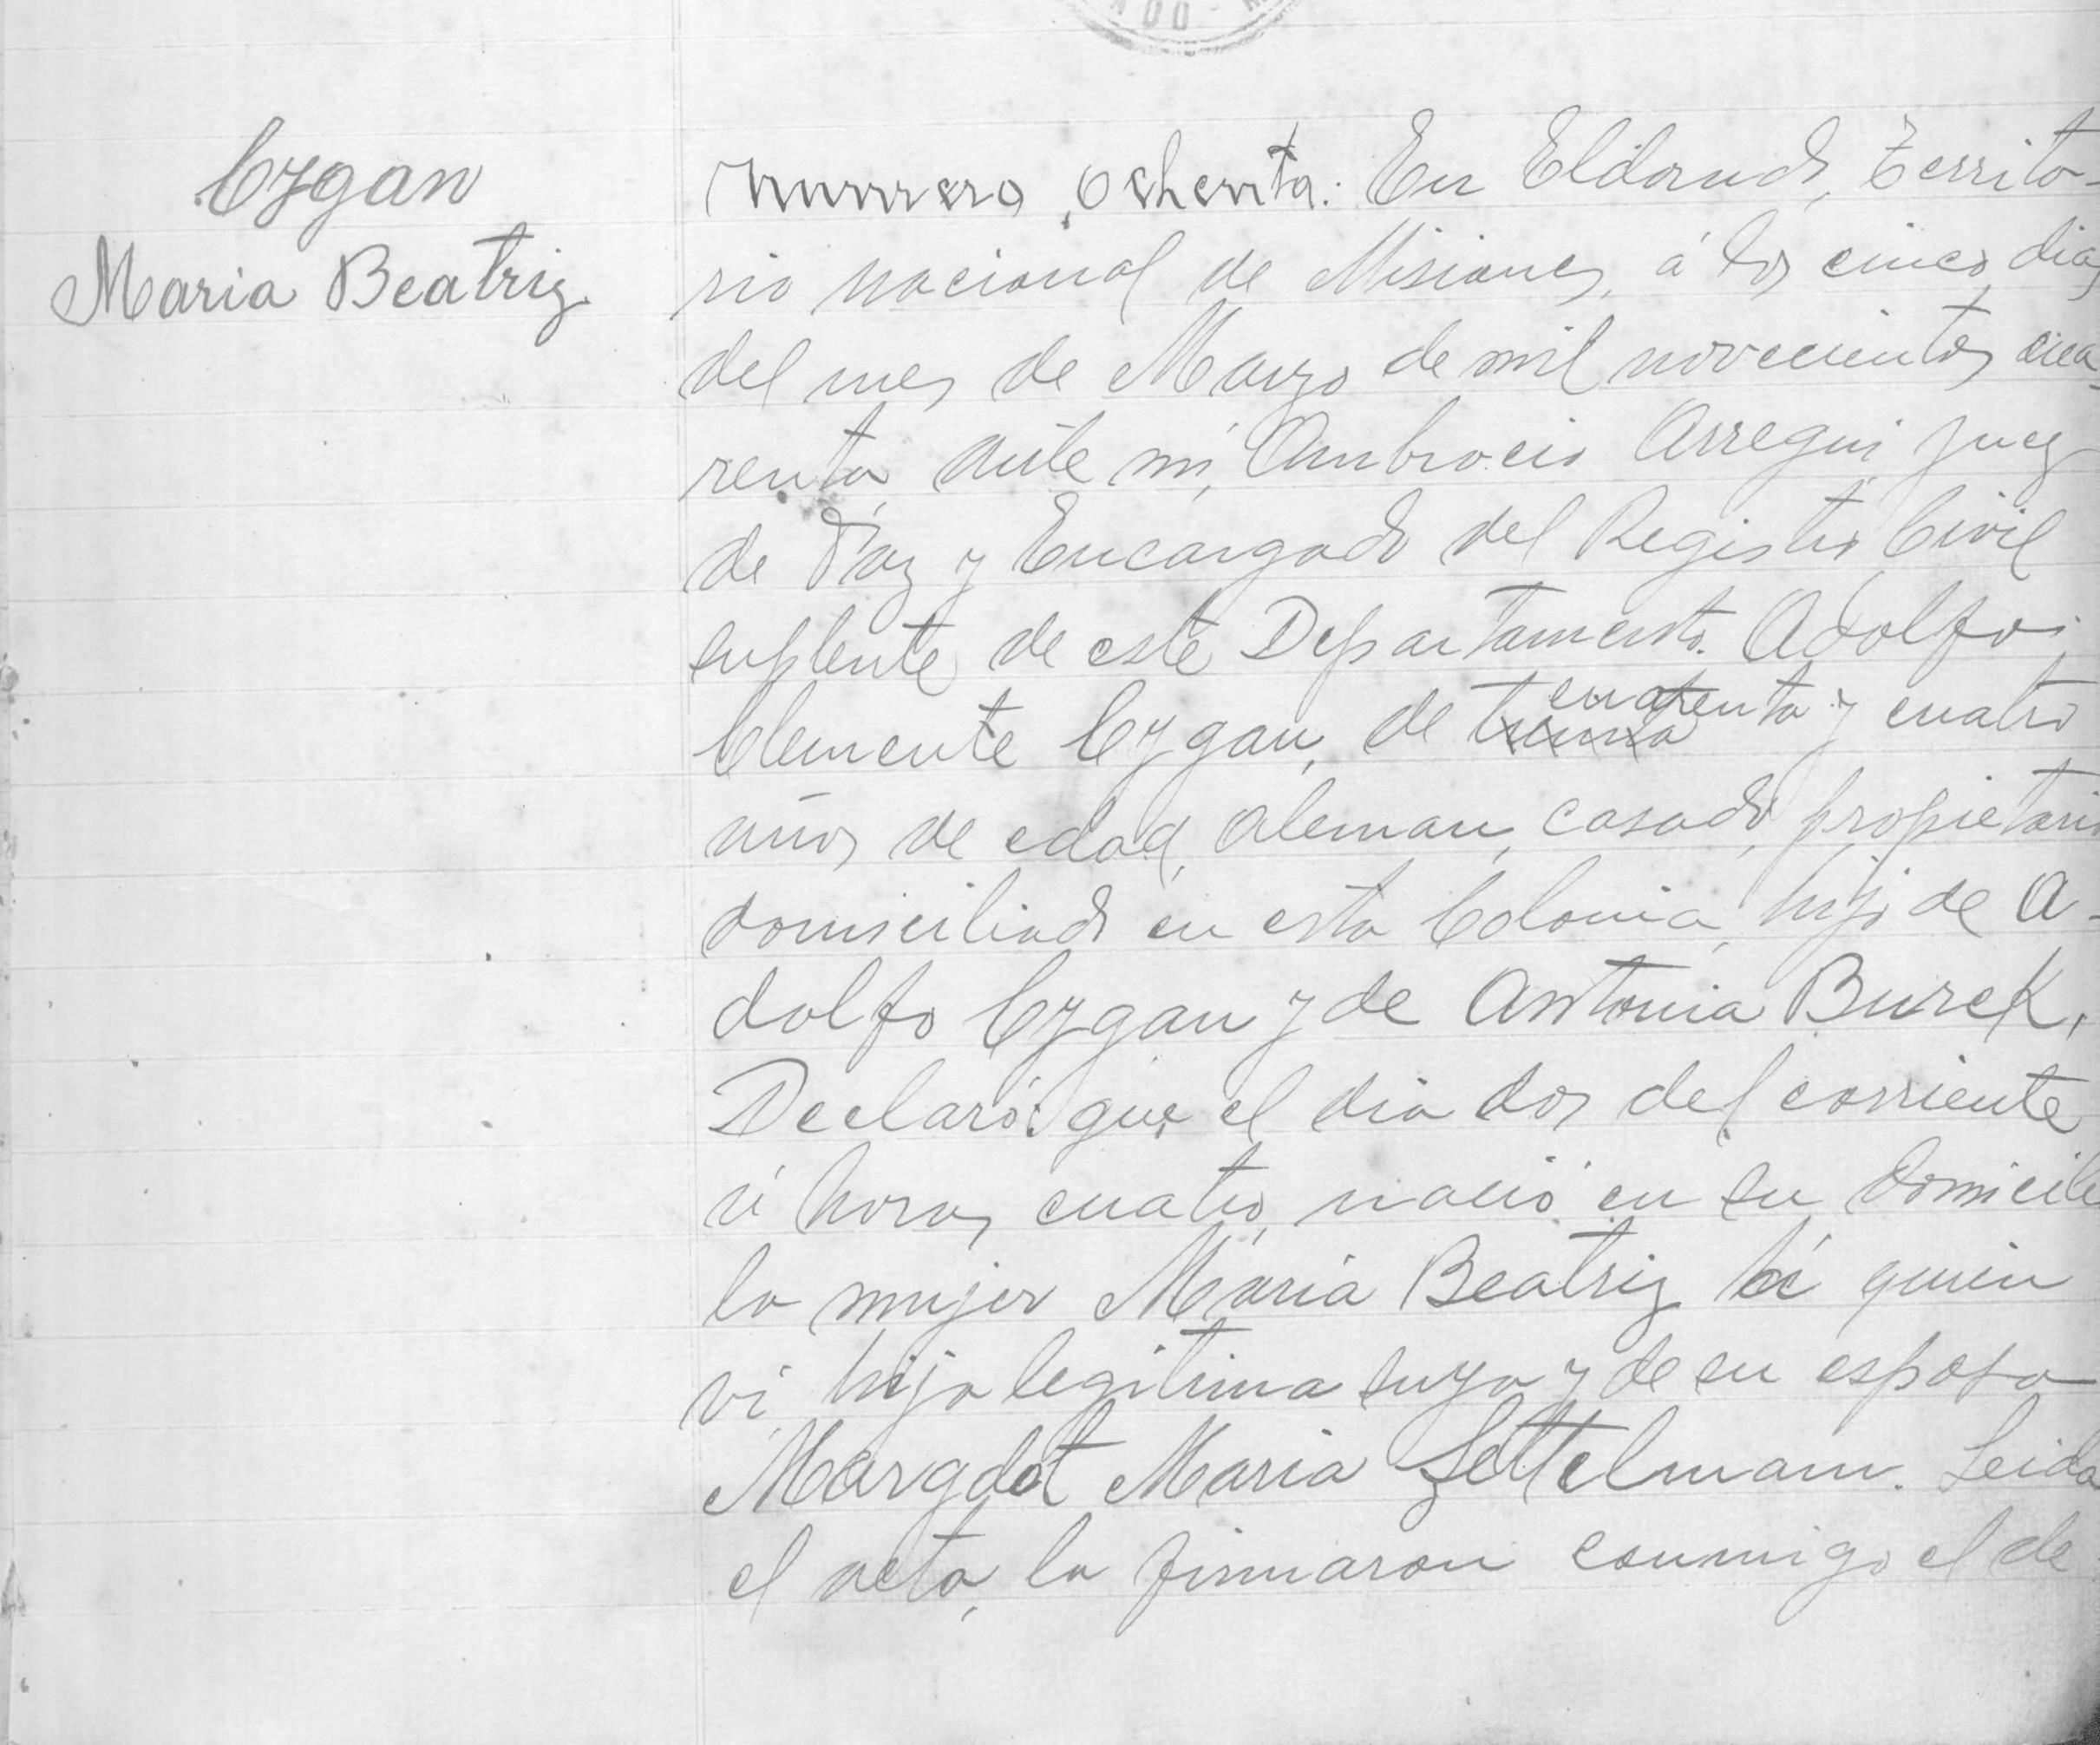 Cygan
Maria Beatriz
Numero ochenta: En Eldorado, Territo-
rio nacional de Misiones, á los cinco dias
del mes de Marzo de mil novecientos cua-
renta, ante mi, Ambrocio Arregui, Juez
de Paz y Encargado del Registro Civil
suplente de este Departamento. Adolfo
Clemente Cygan, de treinta cuarenta y cuatro
años de edad, aleman, casado, propietario
domiciliado en esta Colonia, hijo de A-
dolfo Cygan y de Antonia Burek,
Declaró: que el dia dos del corriente
á horas cuatro, nació en su domicilio
la mujer Maria Beatriz á quien
vi hija legitima suya y de su esposa
Margdot Maria Settelmann. Leida
el acta, la firmaron conmigo el de